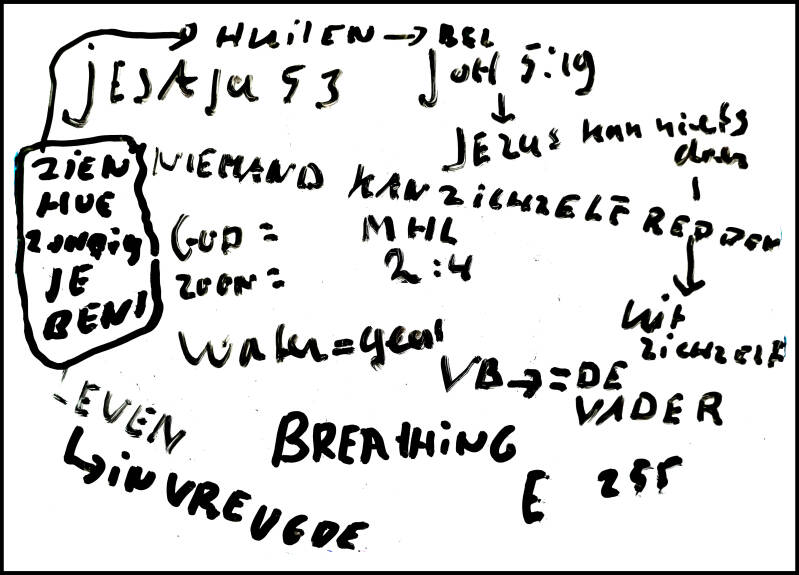 HUILEN → BEL
JESAJA 53
JOH 5:19
JEZUS kan niets
doen
ZIEN
HOE
ZONDIG
JE
BENT
NIEMAND KAN ZICHZELF REDDEN
GOD =
ZOON =
MHL
2:4
Uit
ZICHZELF
Water =
VB → = DE
VADER
LEVEN
↳ IN VREUGDE
BREATHING
E 255